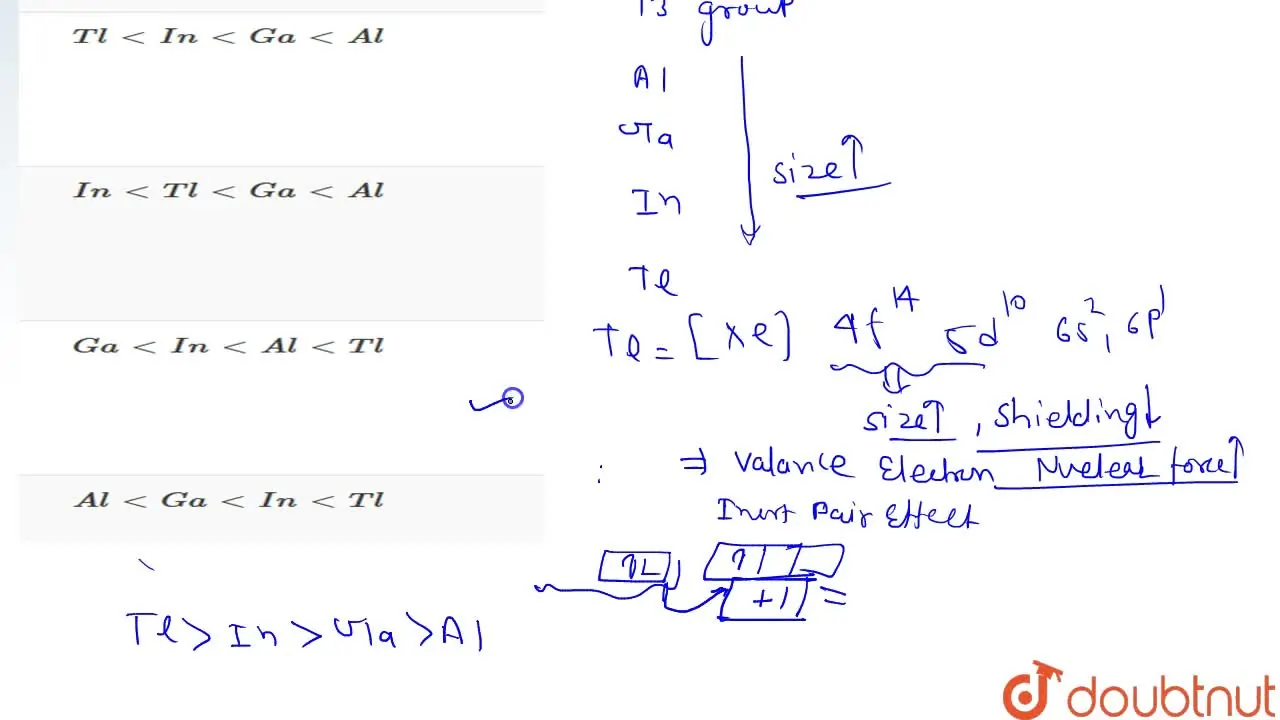 Tl < In < Ga < Al
In < Tl < Ga < Al
Ga < In < Al < Tl
Al < Ga < In < Tl
Tl > In > Ga > Al
13 group
Al
Ga
In
size↑
Tl
Tl = [Xe] 4f¹⁴ 5d¹⁰ 6s², 6p¹
size↑, shielding↓
⇒ Valance Electron Nuclear force↑
Inert Pair Effect
↑ |
+1 =
doubtnut